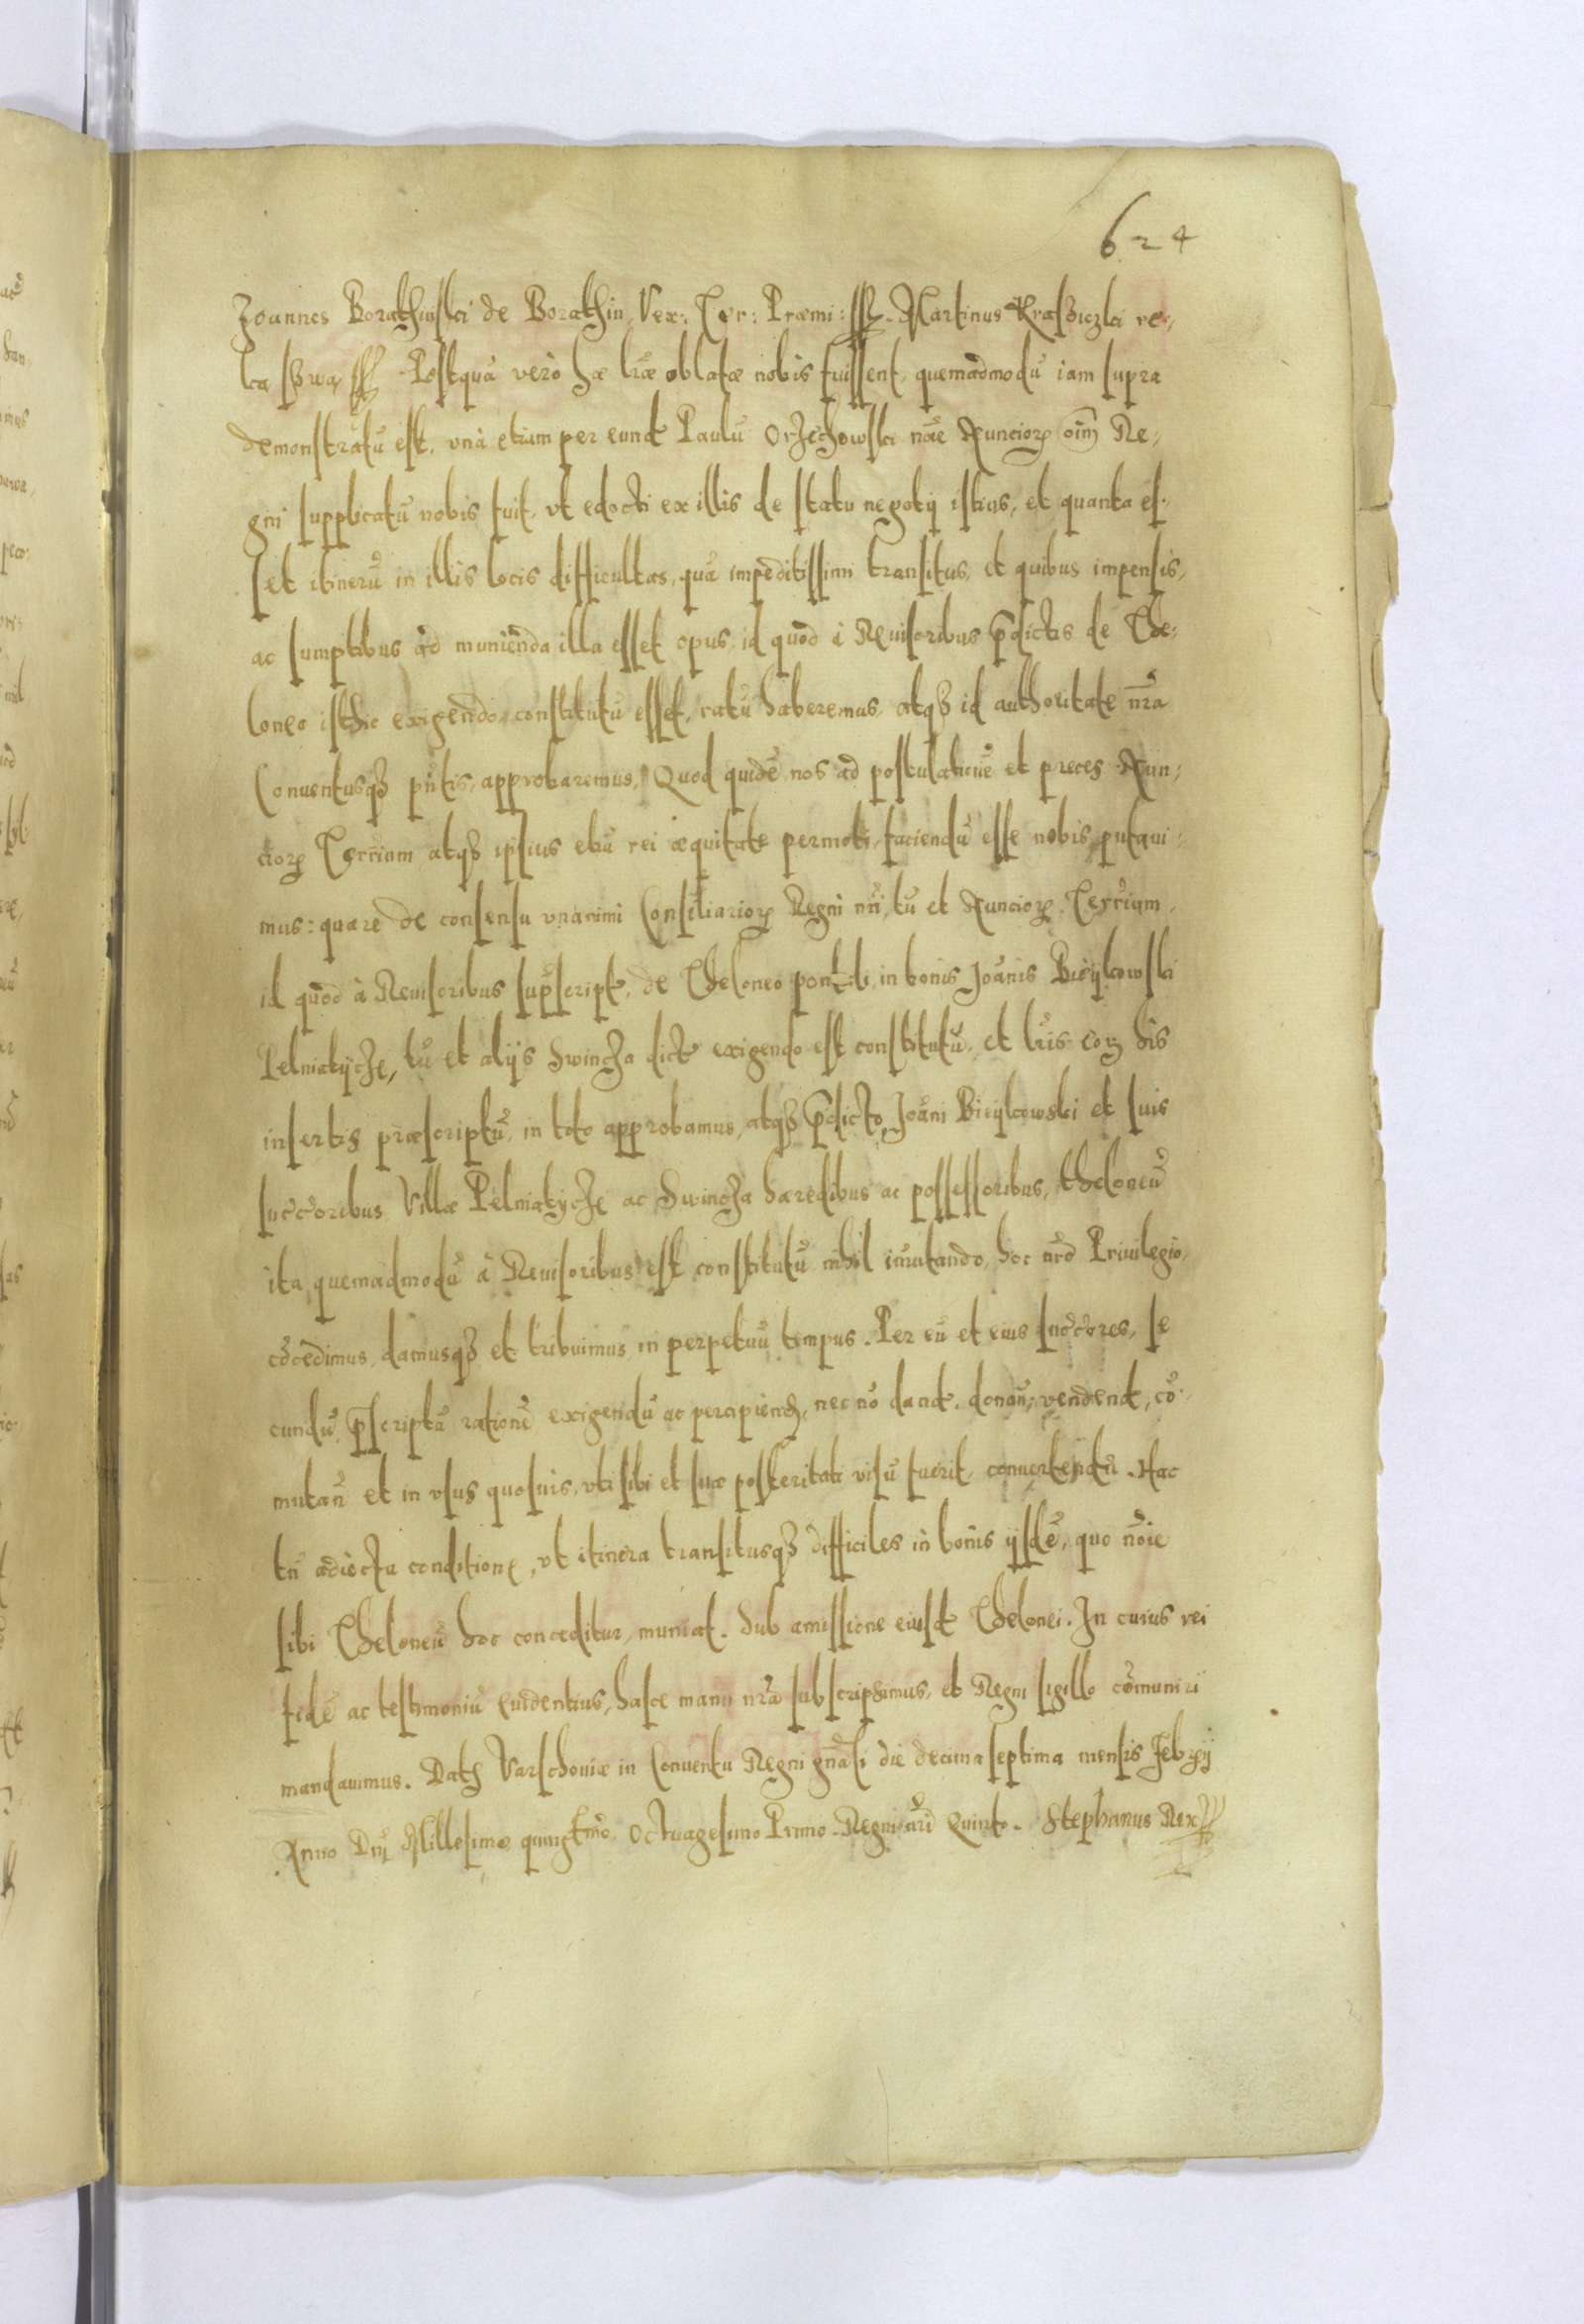 624
Joannes Borathinski de Borathin Vex: Ter: Præmi: ssz. Martinus Krasziczki re-
ka szwą ssz Postquā verò hæ lr̄æ oblatæ nobis fuissent, quemadmodū iam supra
demonstratū est, vnà etiam per eund Paulū Orzechowski nōie Nuncioꝝ oīm Re-
gni supplicatū nobis fuit, vt edocti ex illis de statu negotij istius, et quanta es-
set itinerū in illis locis difficultas, quā impeditissimi transitus, et quibus impensis,
ac sumptibus ad munienda illa esset opus, id quod à Reuisoribus p̄dictis de The-
loneo isthic exigendo constitutū esset, ratū haberemus, atqȝ id authoritate nr̄a
Conuentusqȝ pn̄tis, approbaremus. Quod quidē nos ad postulationē et preces Nun-
cioꝝ Terrium atqȝ ipsius etiā rei æquitate permoti, faciendū esse nobis putaui-
mus: quare de consensu vnanimi Consiliarioꝝ Regni nr̄i, tū et Nuncioꝝ Terrium,
id quod à Reuisoribus sup̄script, de Theloneo pontli in bonis Joānis Bieÿkowski
Pelniatÿcze, tū et alijs Swincza dict exigendo est constitutū, et lr̄is eoꝝ his
insertis præscriptū, in toto approbamus, atqȝ p̄dicto Joāni Bieÿkowski et suis
succ̄oribus Villæ Pelniatÿcze ac Swincza hæredibus ac possessoribus, theloneū
ita, quemadmodū à Reuisoribus est constitutū nihil im̄utando, hoc nr̄o Priuilegio,
cōcedimus, damusqȝ et tribuimus in perpetuū tempus. Per eū et eius succ̄ores, se
cundū p̄scriptā rationē exigendū ac percipiend, nec nō dand, donan̄, vendend, cō-
mutan̄ et in vsus quosuis, vti sibi et suæ posteritati visū fuerit, conuertendū. Hac
tn̄ adiecta conditione, vt itinera transitusqȝ difficiles in bonis ijsdē, quo nōie
sibi Theloneū hoc conceditur, muniat. Sub amissione eiusd Thelonei. In cuius rei
fidē ac testimoniū euidentius, hasce manu nr̄a subscripsimus, et Regni sigillo cōmuniri
mandauimus. Dath Varschouiæ in Conuentu Regni gn̄ali die decima septima mensis Febrij
Anno Dn̄i Millesimo quingtmo Octuagesimo Primo. Regni nr̄i Quinto. Stephanus Rex